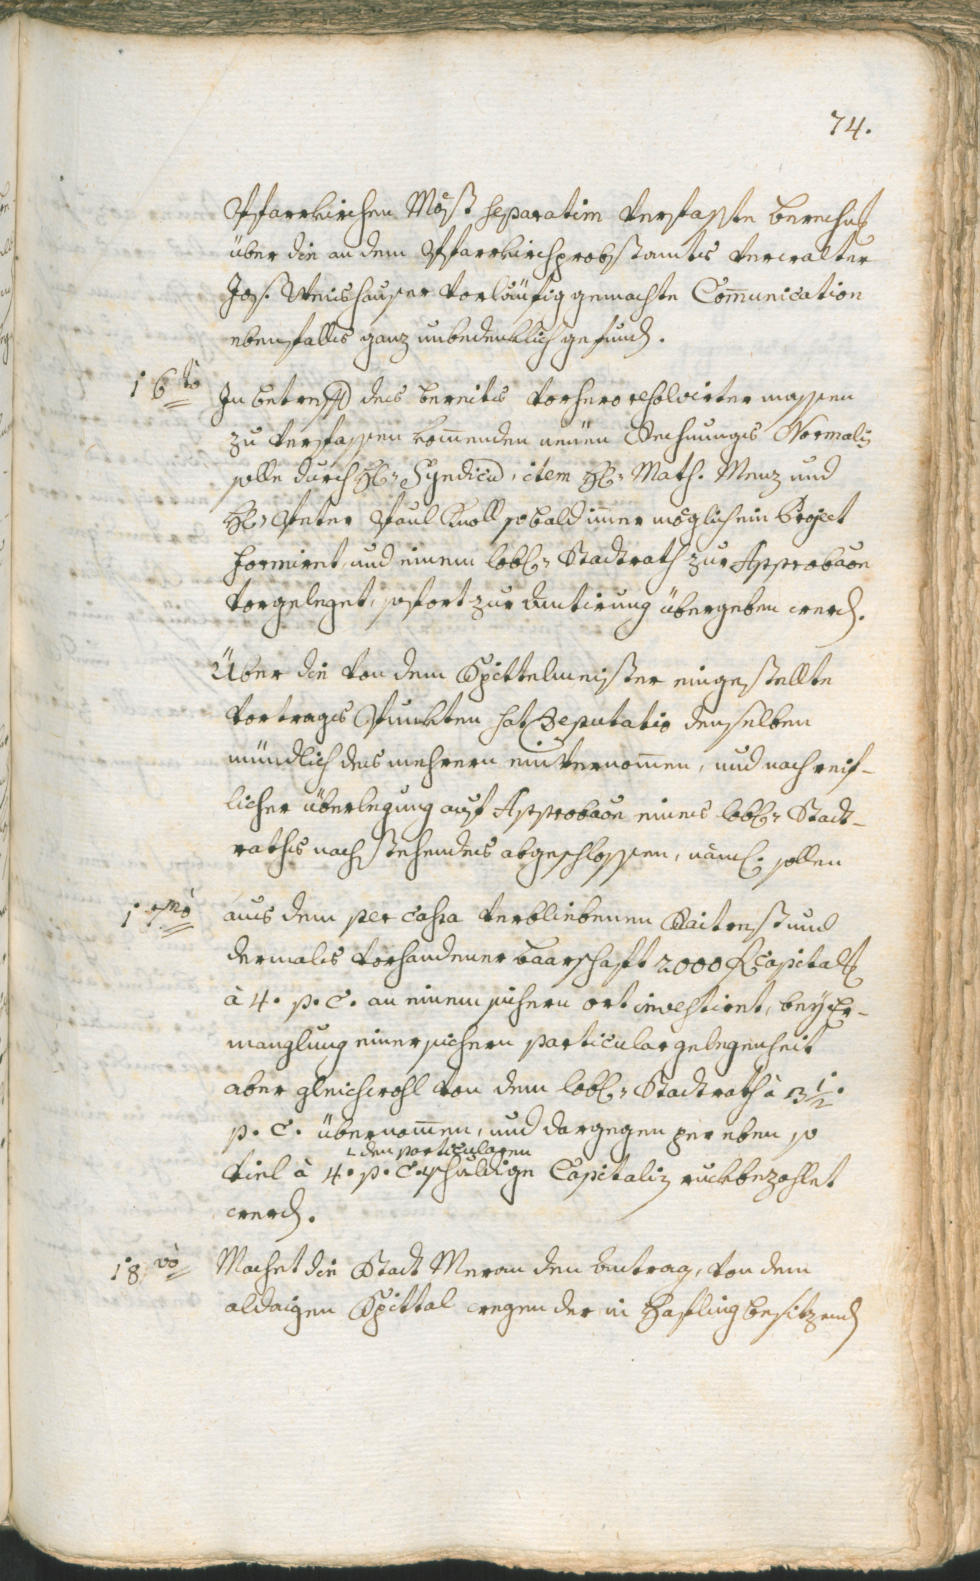 74.
Pfarrkirchen Möst separatim verfasste berechn:
über die an dem Pfarrkirchprobstamts Verwalter
Jos. Weishauser vorläufig gemachte Com̄unication
ebenfalls ganz unbedenklich gefund.
16to
In betreff des bereits vorhero resolvirter massen
zu verfassen kom̄enden neuen Rechnungs Normalis
solle durch H: Syndicu, item H: Math. Menz und
H: Peter Paul Knoll sobald im̄er möglich ein Project
formiret, und einem lobl: Stadtrath zur Approbaōn
vorgeleget, sofort zur Amtirung übergeben werd.
Über die von dem Spittelmeister eingestellte
vortrags Punkten hat Deputatio denselben
mündlich des mehrern einvernom̄en, und nach reif-
licher überlegung auf Approbaōn eines lobl: Stadt-
raths nachstehendes abgeschlossen, näml: sollen
17mo
aus dem per cassa verbliebenen Raitrest und
dermals vorhandener baarschaft 2000 f Capital
à 4. p. C. an einem sichern ort investirt, bey Er-
manglung einer sichern particular gelegenheit
aber gleichwohl von dem lobl: Stadtrath à 3 1/2.
p. C. übernom̄en, und dargegen per eben so
den particularen
viel à 4. p. C. schuldige Capitalis ruckbezahlet
werd.
18vo
Machet die Stadt Meran den Antrag, von dem
aldaigen Spittal wegen der in Hafling besitzend